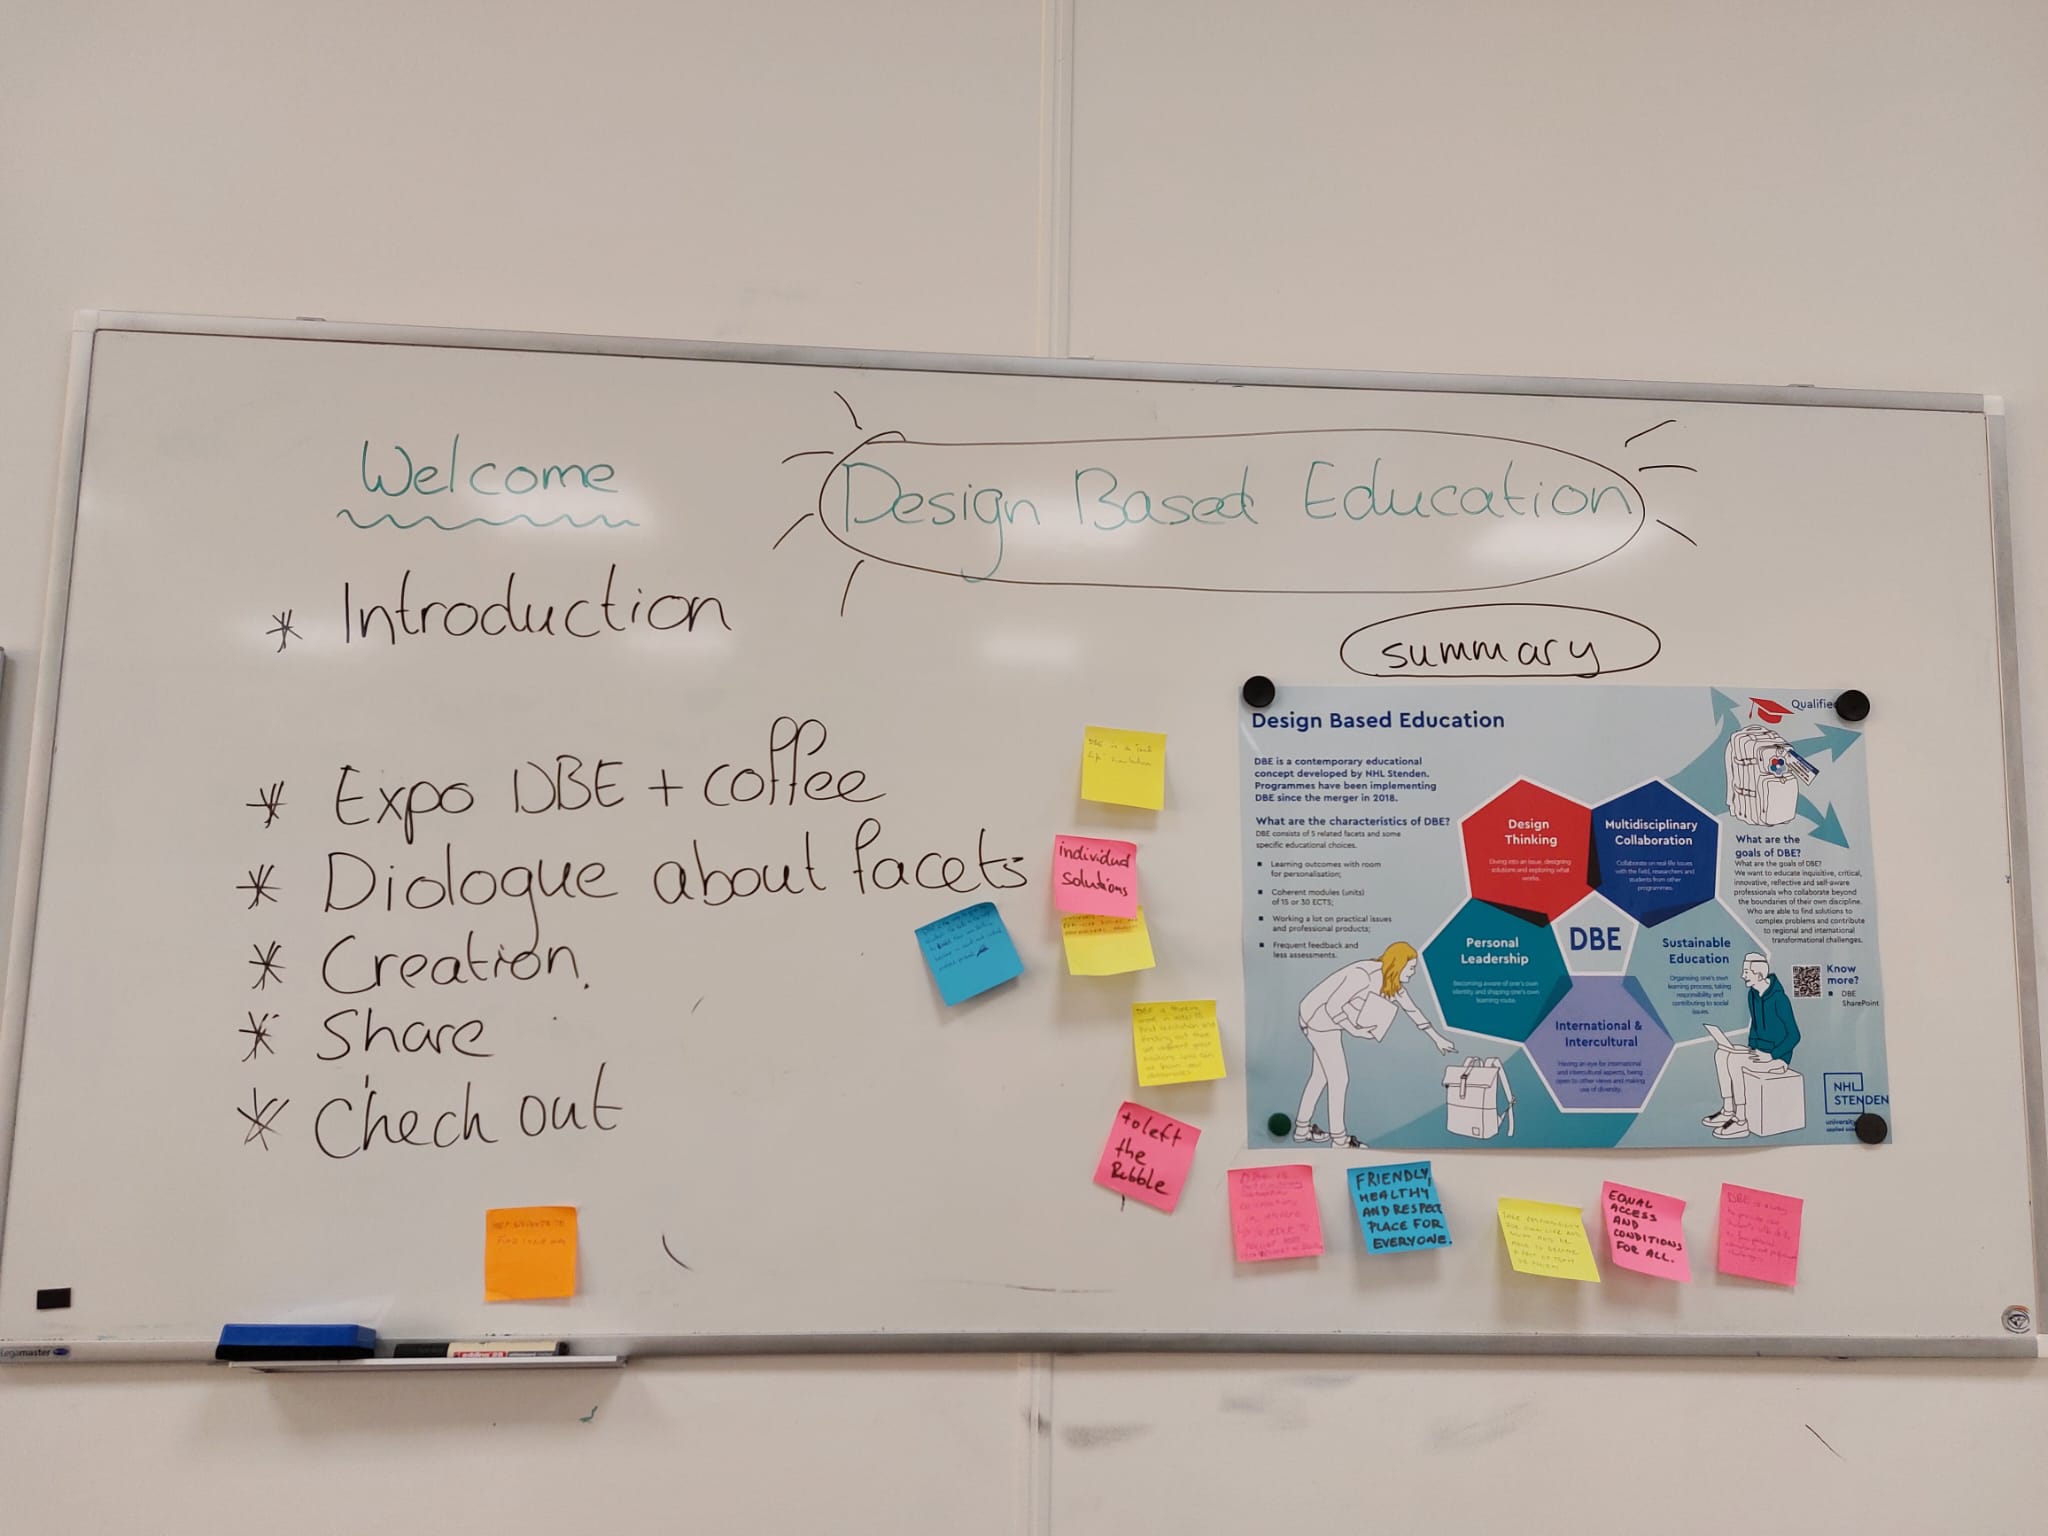 Welcome
Design Based Education
* Introduction
* Expo DBE + coffee
* Diologue about facets
* Creation.
* Share
* Check out
summary
Design Based Education
DBE is a contemporary educational
concept developed by NHL Stenden.
Programmes have been implementing
DBE since the merger in 2018.
What are the characteristics of DBE?
DBE consists of 5 related facets and some
specific educational choices.
Learning outcomes with room
for personalisation;
Coherent modules (units)
of 15 or 30 ECTS;
Working a lot on practical issues
and professional products;
Frequent feedback and
less assessments.
Design
Thinking
Diving into an issue, designing
solutions and exploring what
works.
Multidisciplinary
Collaboration
Collaborate on real-life issues
with the field, researchers and
students from other
programmes.
Personal
Leadership
Becoming aware of one's own
identity and shaping one's own
learning route.
DBE
Sustainable
Education
Organising one's own
learning process, taking
responsibility and
contributing to social
issues.
International &
Intercultural
Having an eye for international
and intercultural aspects, being
open to other views and making
use of diversity.
Qualifie
What are the
goals of DBE?
What are the goals of DBE?
We want to educate inquisitive, critical,
innovative, reflective and self-aware
professionals who collaborate beyond
the boundaries of their own discipline.
Who are able to find solutions to
complex problems and contribute
to regional and international
transformational challenges.
Know
more?
DBE
SharePoint
NHL
STENDEN
university
applied
DBE is a
individud
solutions
to left
the
Bubble
DBE is
FRIENDLY,
HEALTHY
AND RESPECT
PLACE FOR
EVERYONE.
EQUAL
ACCESS
AND
CONDITIONS
FOR ALL.
Legamaster
edding